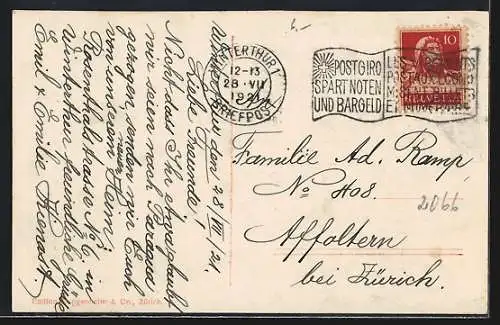 Winterthur, den 28/VII/21.
Liebe Freunde!
Nicht dass Ihr etwa glaubt
wir seien nach
gezogen, senden wir Euch
von unserem neuen Heim
Rosenthalstrasse No 6 in
Winterthur freundliche Grüsse
Emil & Emilie
WINTERTHUR 1
12-13
28·VII
1921
BRIEFPOST
POSTGIRO
SPART NOTEN
UND BARGELD
10
HELVETIA
Familie Ad. Ramp
No 408.
Affoltern
bei Zürich.
2066
& Co., Zürich.